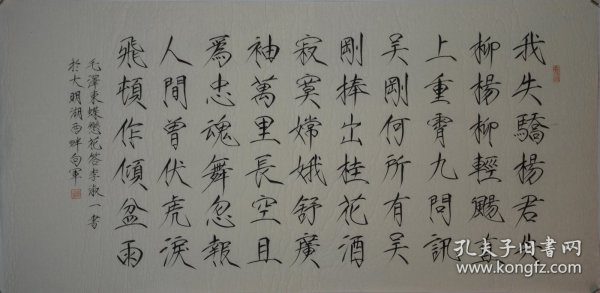 我失驕楊君失
柳楊柳輕颺直
上重霄九問訊
吴剛何所有吴
剛捧出桂花酒
寂寞嫦娥舒廣
袖萬里長空且
爲忠魂舞忽報
人間曾伏虎淚
飛頓作傾盆雨
毛澤東蝶戀花答李淑一書
於大明湖西畔軍
孔夫子旧书网
www.kongfz.com